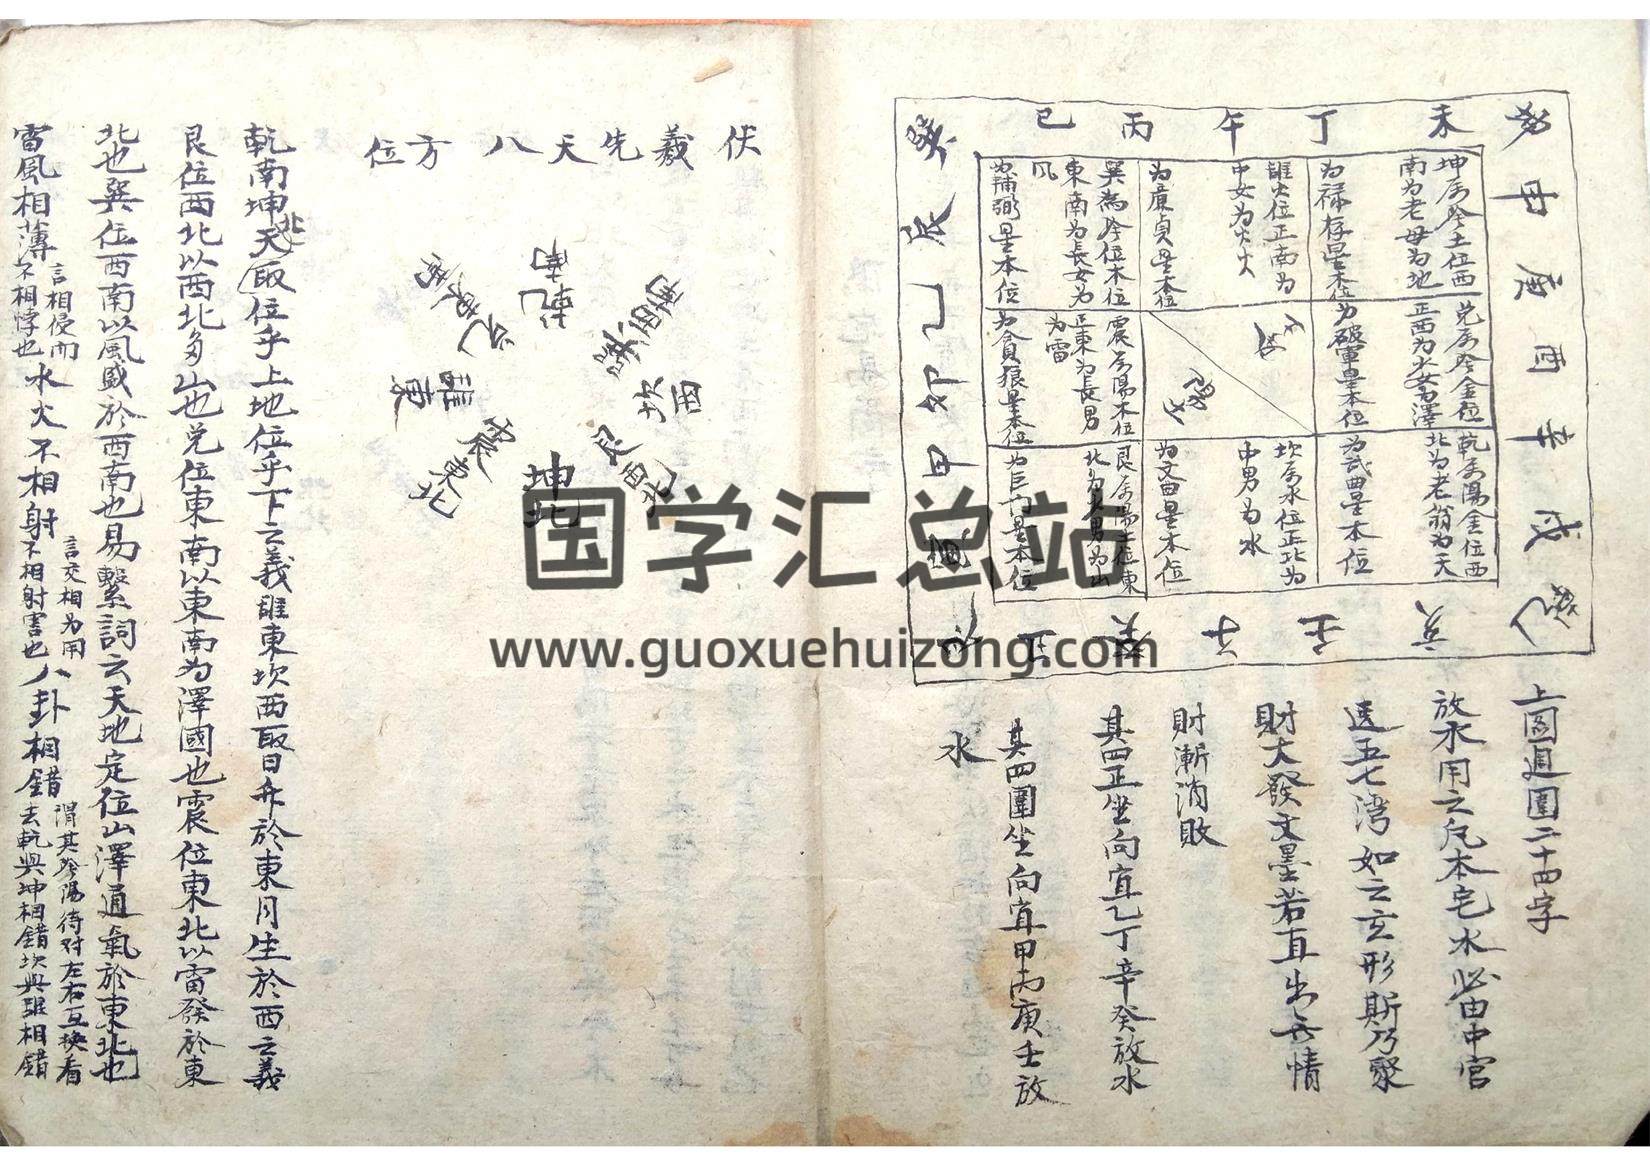 巳丙午丁未
申庚酉辛戌
辰乙卯甲
坤属阴土位西
南为老母为地
为禄存星本位
離火位正南为
中女为火
为廉貞星本位
巽為阴位木位
東南为長女为
风
为輔弼星本位
兑属阴金位
正西为少女为澤
为破軍星本位
阴
陽
震属陽木位
正東为長男
为雷
为貪狼星本位
乾属陽金位西
北为老翁为天
为武曲星本位
坎属水位正北为
中男为水
为文曲星本位
艮属陽土位東
北为少男为山
为巨门星本位
上圖週圍二十四字
放水用之凡本宅水必由中宫
透五七湾如之玄形斯乃聚
財大發文墨若直出无情
財漸消敗
其四正坐向宜乙丁辛癸放水
其四圍坐向宜甲丙庚壬放
水
伏羲先天八方位
乾南
兑東南
離東
震東北
巽西南
坎西
艮西北
坤北
乾南坤北天取位乎上地位乎下之義離東坎西取日升於東月生於西之義
艮位西北以西北多山也兑位東南以東南为澤國也震位東北以雷發於東
北也巽位西南以風盛於西南也易繫詞云天地定位山澤通氣於東北也
雷風相薄言相侵而不相悖也水火不相射言交相为用不相射害也八卦相錯謂其阴陽待对左右互换看去乾與坤相錯坎與離相錯
国学汇总站
www.guoxuehuizong.com